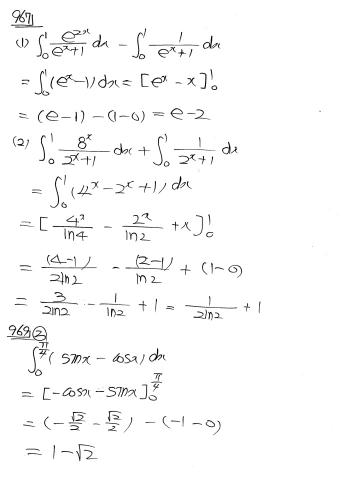 967)
(1) ∫₀¹ e^{2x}/(e^x+1) dx − ∫₀¹ 1/(e^x+1) dx
= ∫₀¹ (e^x−1) dx = [e^x − x]₀¹
= (e−1) − (1−0) = e−2
(2) ∫₀¹ 8^x/(2^x+1) dx + ∫₀¹ 1/(2^x+1) dx
= ∫₀¹ (4^x − 2^x + 1) dx
= [4^x/ln4 − 2^x/ln2 + x]₀¹
= (4−1)/2ln2 − (2−1)/ln2 + (1−0)
= 3/2ln2 − 1/ln2 + 1 = 1/2ln2 + 1
969) ②
∫₀^{π/4} (sinx − cosx) dx
= [−cosx − sinx]₀^{π/4}
= (−√2/2 − √2/2) − (−1−0)
= 1−√2